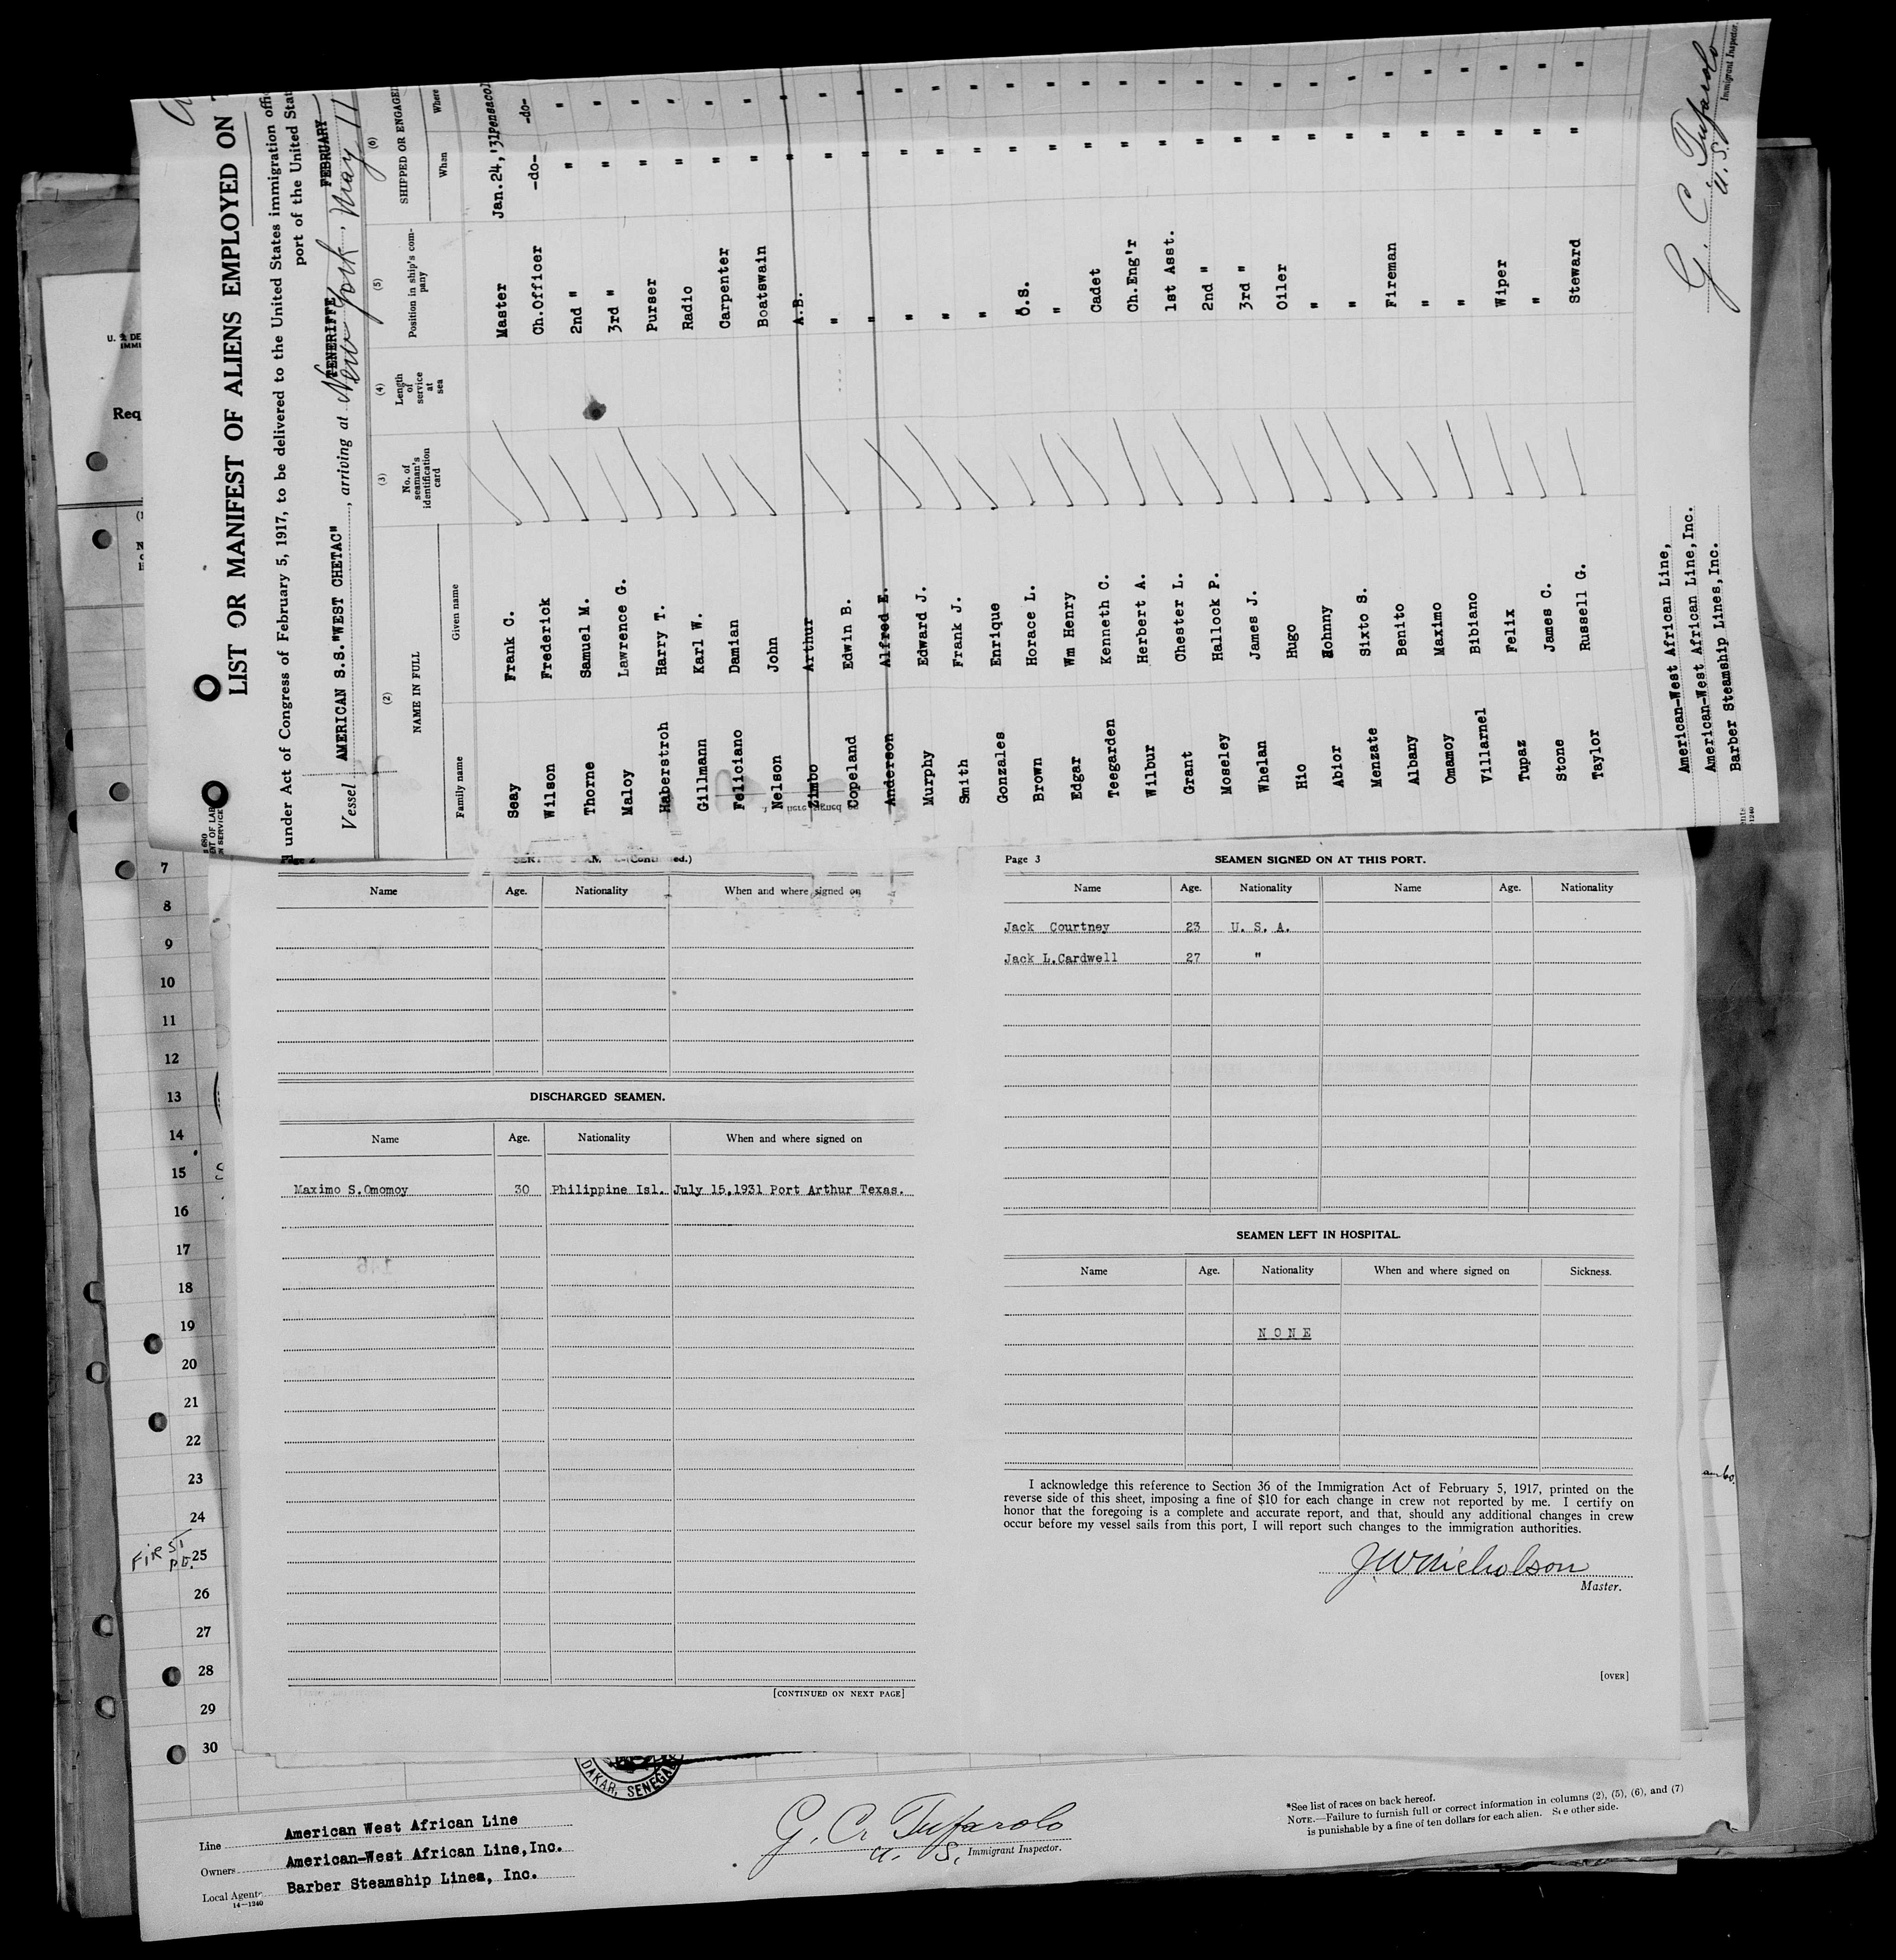 LIST OR MANIFEST OF ALIENS EMPLOYED ON
under Act of Congress of February 5, 1917, to be delivered to the United States immigration
port of the United
Vessel AMERICAN S.S."WEST CHETAC", arriving at TENERIFFE FEBRUARY New York, May 11
(2) (3) (4) (5) (6)
NAME IN FULL No. of seaman's identification card Length of service at sea Position in ship's company SHIPPED OR ENGAGED
Family name Given name When Where
Seay Frank C. Master Jan.24,'31 Pensacol
Wilson Frederick Ch.Officer -do- -do-
Thorne Samuel M. 2nd " " "
Maloy Lawrence G. 3rd " " "
Haberstroh Harry T. Purser " "
Gillmann Karl W. Radio " "
Feliciano Damian Carpenter " "
Nelson John Boatswain " "
Zimbo Arthur A.B. " "
Copeland Edwin B. " " "
Anderson Alfred E. " " "
Murphy Edward J. " " "
Smith Frank J. " " "
Gonzales Enrique " " "
Brown Horace L. O.S. " "
Edgar Wm Henry " " "
Teegarden Kenneth C. Cadet " "
Wilbur Herbert A. Ch.Eng'r " "
Grant Chester L. 1st Asst. " "
Moseley Hallock P. 2nd " " "
Whelan James J. 3rd " " "
Hio Hugo Oiler " "
Abior Johnny " " "
Menzate Sixto S. " " "
Albany Benito Fireman " "
Omamoy Maximo " " "
Villarnel Bibiano " " "
Tupaz Felix Wiper " "
Stone James C. " " "
Taylor Russell G. Steward " "
American-West African Line,
American-West African Line,Inc.
Barber Steamship Lines,Inc.
G. C. Tufarolo
U. S. Immigrant Inspector.
Req
7
8
9
10
11
12
13
14
15
16
17
18
19
20
21
22
23
24
25
26
27
28
29
30
FIRST
PG.
Name Age. Nationality When and where signed on
DISCHARGED SEAMEN.
Name Age. Nationality When and where signed on
Maximo S.Omomoy 30 Philippine Isl. July 15,1931 Port Arthur Texas.
[CONTINUED ON NEXT PAGE]
Page 3 SEAMEN SIGNED ON AT THIS PORT.
Name Age. Nationality Name Age. Nationality
Jack Courtney 23 U. S. A.
Jack L.Cardwell 27 "
SEAMEN LEFT IN HOSPITAL.
Name Age. Nationality When and where signed on Sickness.
N O N E
I acknowledge this reference to Section 36 of the Immigration Act of February 5, 1917, printed on the
reverse side of this sheet, imposing a fine of $10 for each change in crew not reported by me. I certify on
honor that the foregoing is a complete and accurate report, and that, should any additional changes in crew
occur before my vessel sails from this port, I will report such changes to the immigration authorities.
J.W Nicholson
Master.
[OVER]
DAKAR, SENEGAL
Line American West African Line
Owners American-West African Line,Inc.
Local Agents Barber Steamship Lines, Inc.
14—1240
G. C. Tufarolo
U. S. Immigrant Inspector.
*See list of races on back hereof.
NOTE.—Failure to furnish full or correct information in columns (2), (5), (6), and (7)
is punishable by a fine of ten dollars for each alien. See other side.